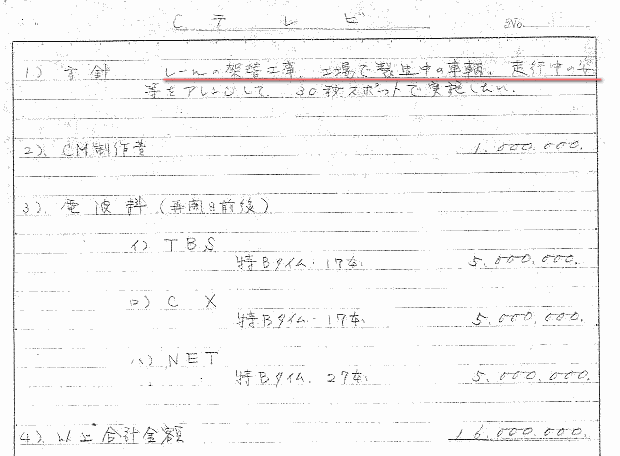 C テレビ
No.
1) 方針 レールの架替工事、工場で製造中の車輌、走行中の姿
等をアレンジして 30秒スポットで実施したい.
2). CM制作費 1.000.000.
3). 電波料 (再開日前後)
イ) TBS
特Bタイム. 17本. 5.000.000.
ロ) C X
特Bタイム. 17本. 5.000.000.
ハ) NET
特Bタイム. 27本. 5.000.000.
4). 以上合計金額 16.000.000.